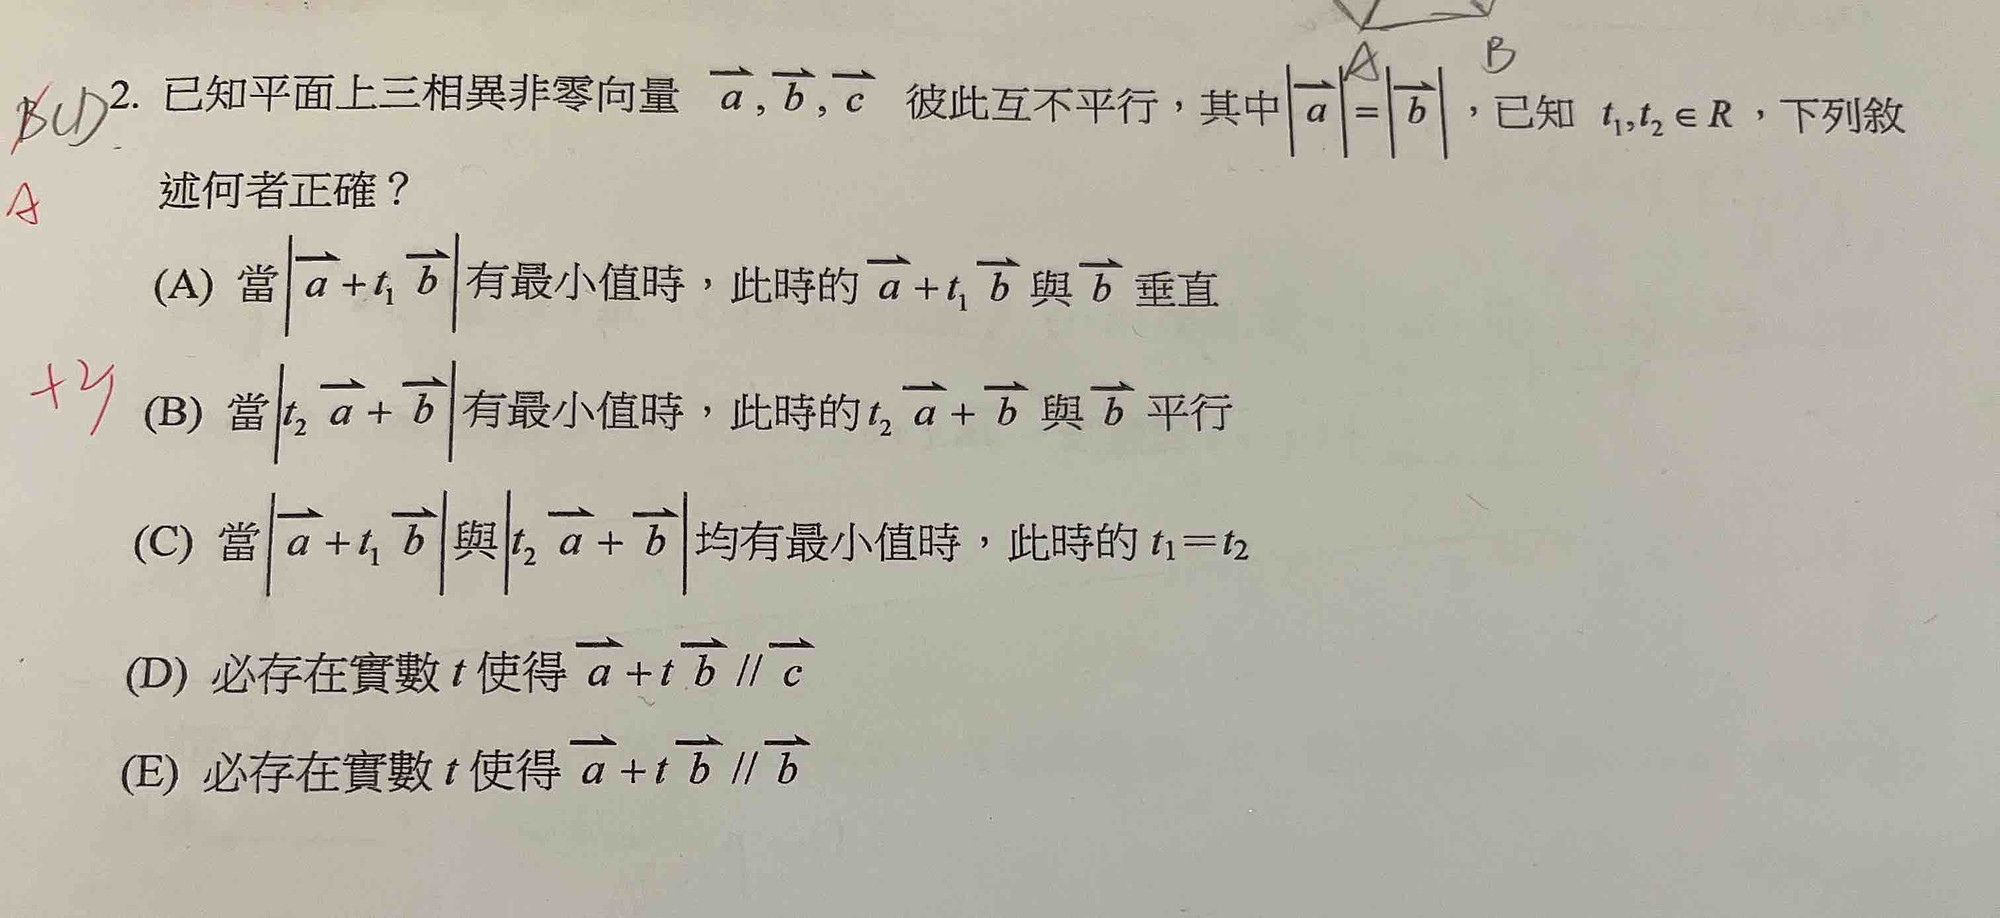 A B
2. 已知平面上三相異非零向量 a, b, c 彼此互不平行，其中|a|=|b|，已知 t₁,t₂∈R，下列敘
述何者正確？
A
(A) 當|a+t₁ b|有最小值時，此時的 a+t₁ b 與 b 垂直
(B) 當|t₂ a+b|有最小值時，此時的 t₂ a+b 與 b 平行
(C) 當|a+t₁ b|與|t₂ a+b|均有最小值時，此時的 t₁=t₂
(D) 必存在實數 t 使得 a+t b // c
(E) 必存在實數 t 使得 a+t b // b